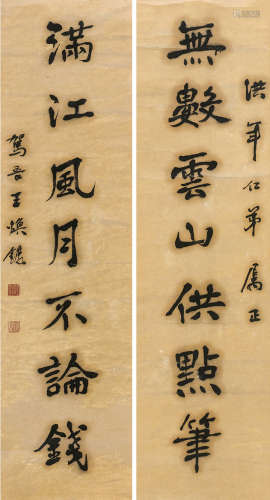 洪年仁弟屬正
無數雲山供點筆
滿江風月不論錢
駕吾王煥鑣